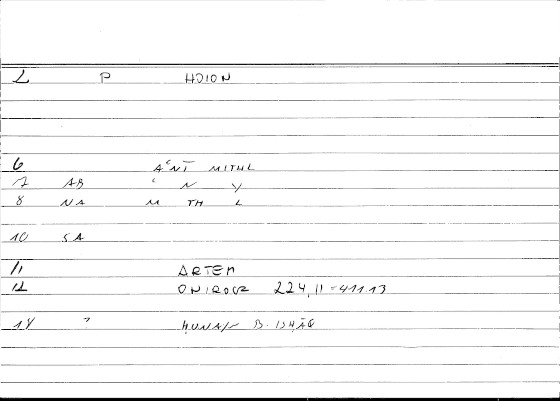 2 P HDION
6 AʿNT MITHL
7 AB ʿ N Y
8 NA M TH L
10 SA
11 ARTEM
12 ONIROCR 224,11 = 411.13
14 ? ḤUNAIN B. ISḤĀQ